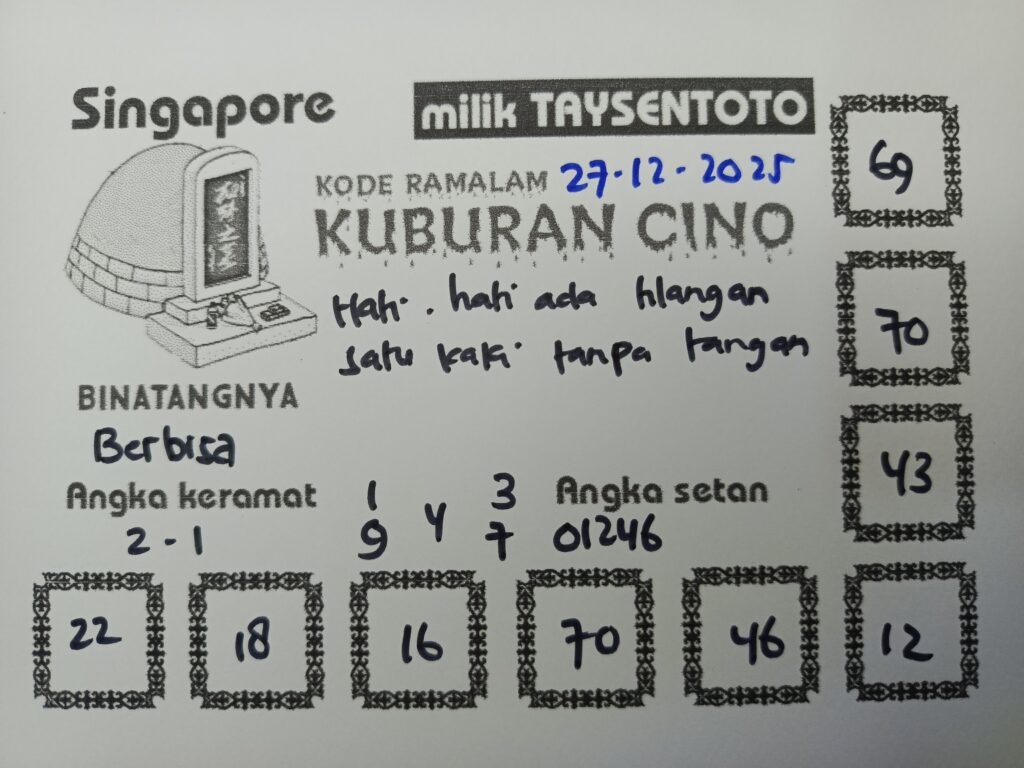 Singapore
milik TAYSENTOTO
KODE RAMALAM 27-12-2025
KUBURAN CINO
Hati . hati ada hlangan
satu kaki tanpa tangan
BINATANGNYA
Berbisa
Angka keramat
2 - 1
1 3
4
9 7
Angka setan
01246
69
70
43
22 18 16 70 46 12